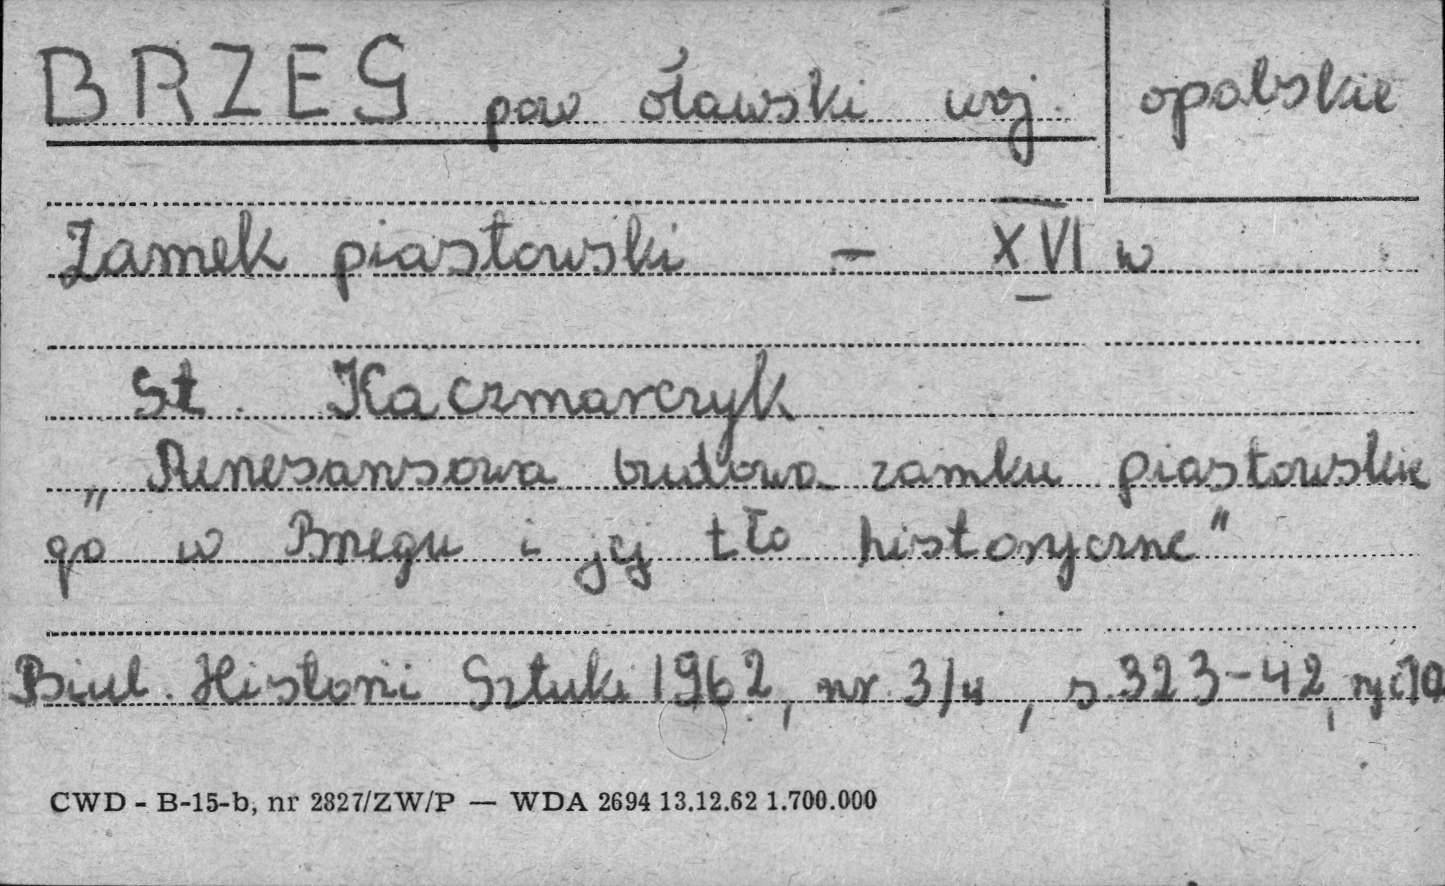 BRZEG pow oławski woj. opolskie
Zamek piastowski – XVI w
St. Kaczmarczyk
„Renesansowa budowa zamku piastowskie
go w Brzegu i jej tło historyczne"
Biul. Historii Sztuki 1962, nr. 3/4, s. 323-42, ryc 10
CWD - B-15-b, nr 2827/ZW/P — WDA 2694 13.12.62 1.700.000